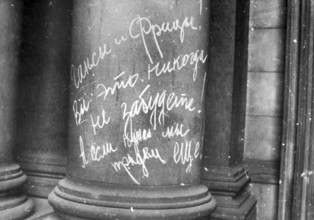 Гансы и Фрицы!
Вы это никогда
не забудете!
А если нужно мы
придем еще.